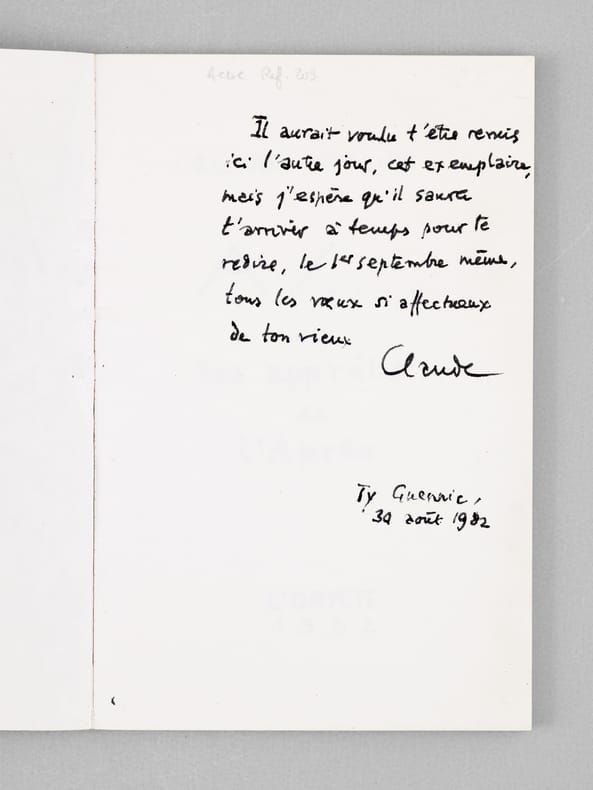 Il aurait voulu t'être remis
ici l'autre jour, cet exemplaire,
mais j'espère qu'il saura
t'arriver à temps pour te
redire, le 1er septembre même,
tous les vœux si affectueux
de ton vieux
Claude
Ty Guennic,
30 août 1982